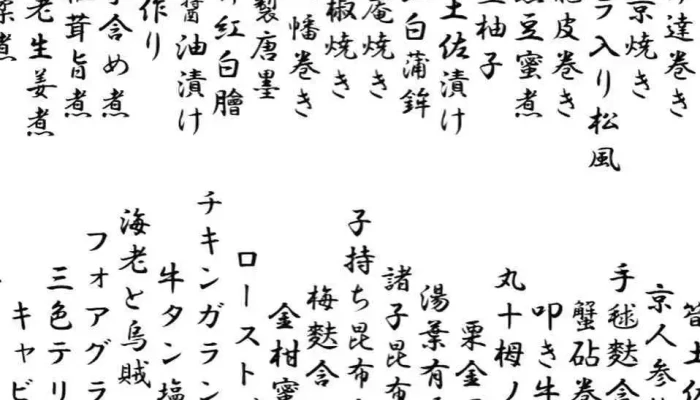 達巻き
京焼き
ラ入り松風
皮巻き
豆蜜煮
柚子
土佐漬け
白蒲鉾
庵焼き
椒焼き
幡巻き
製唐墨
紅白膾
醤油漬け
作り
含め煮
茸旨煮
老生姜煮
煮
筍土佐
京人参
手毬麩含
蟹砧巻
叩き牛
丸十栂ノ
栗金
湯葉有
諸子昆布
子持ち昆布
梅麩含
金柑蜜
ロースト
チキンガラン
牛タン塩
海老と烏賊
フォアグラ
三色テリ
キャビ